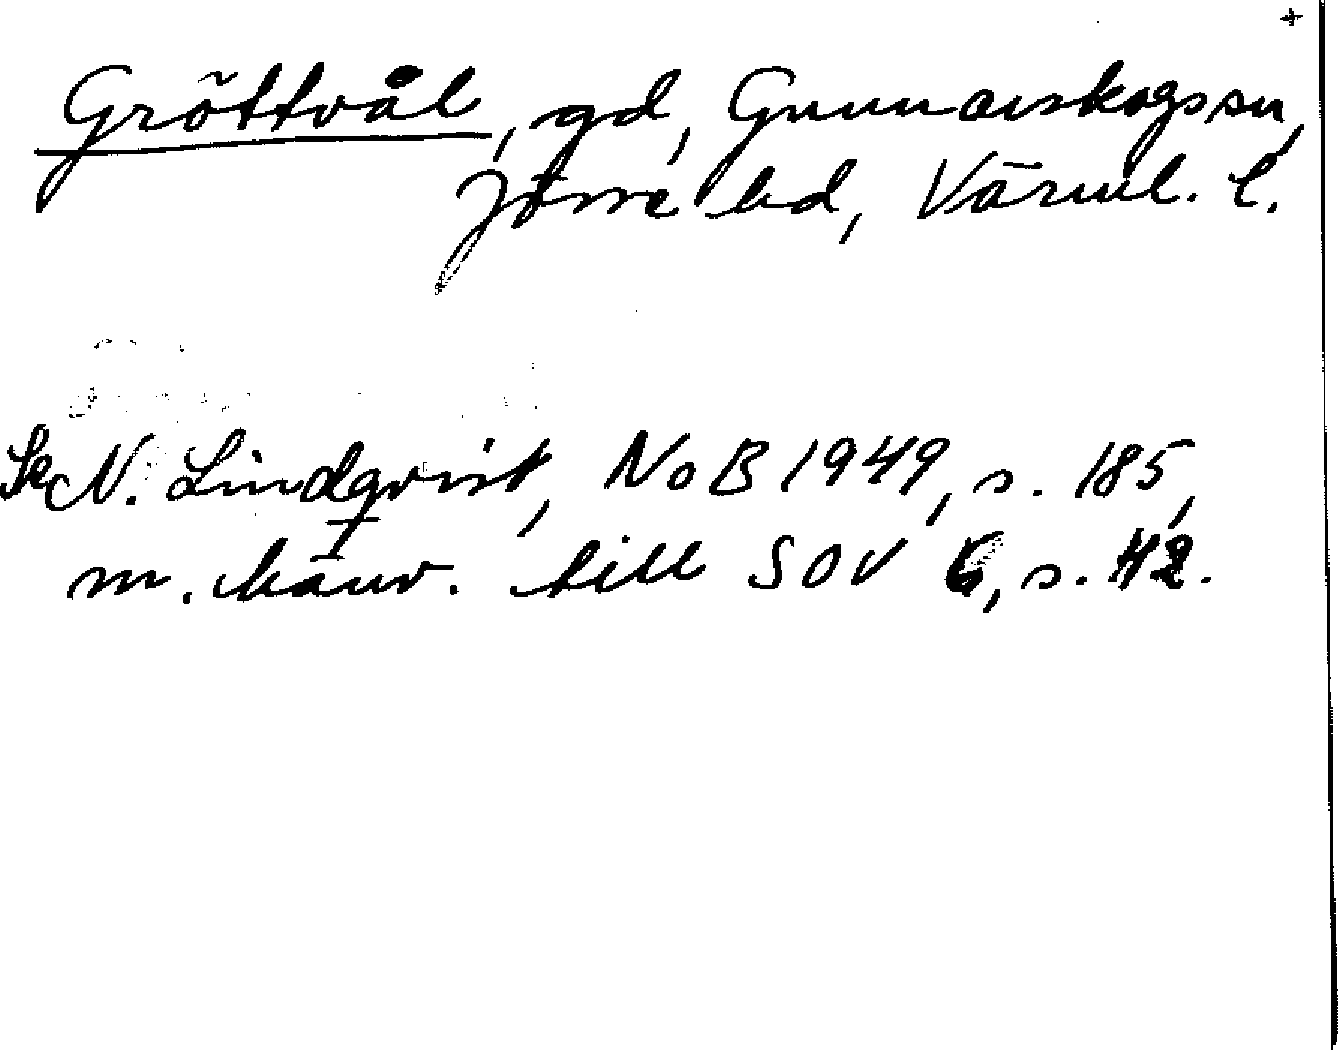 +
Gröttvål, gd, Gunnarskogs sn,
Jösse hd, Värml. l.
Se N. Lindqvist, NoB 1949, s. 185,
m. hänv. till SOV 6, s. 42.